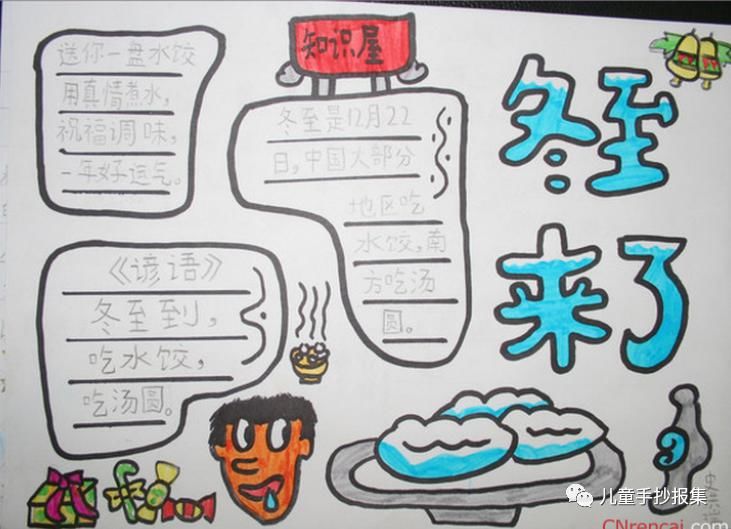 送你一盘水饺
用真情煮水，
祝福调味，
一年好运气。
知识屋
冬至是12月22
日，中国大部分
地区吃
水饺，南
方吃汤
圆。
冬至
来了
《谚语》
冬至到，
吃水饺，
吃汤圆。
儿童手抄报集
CNrencai.com